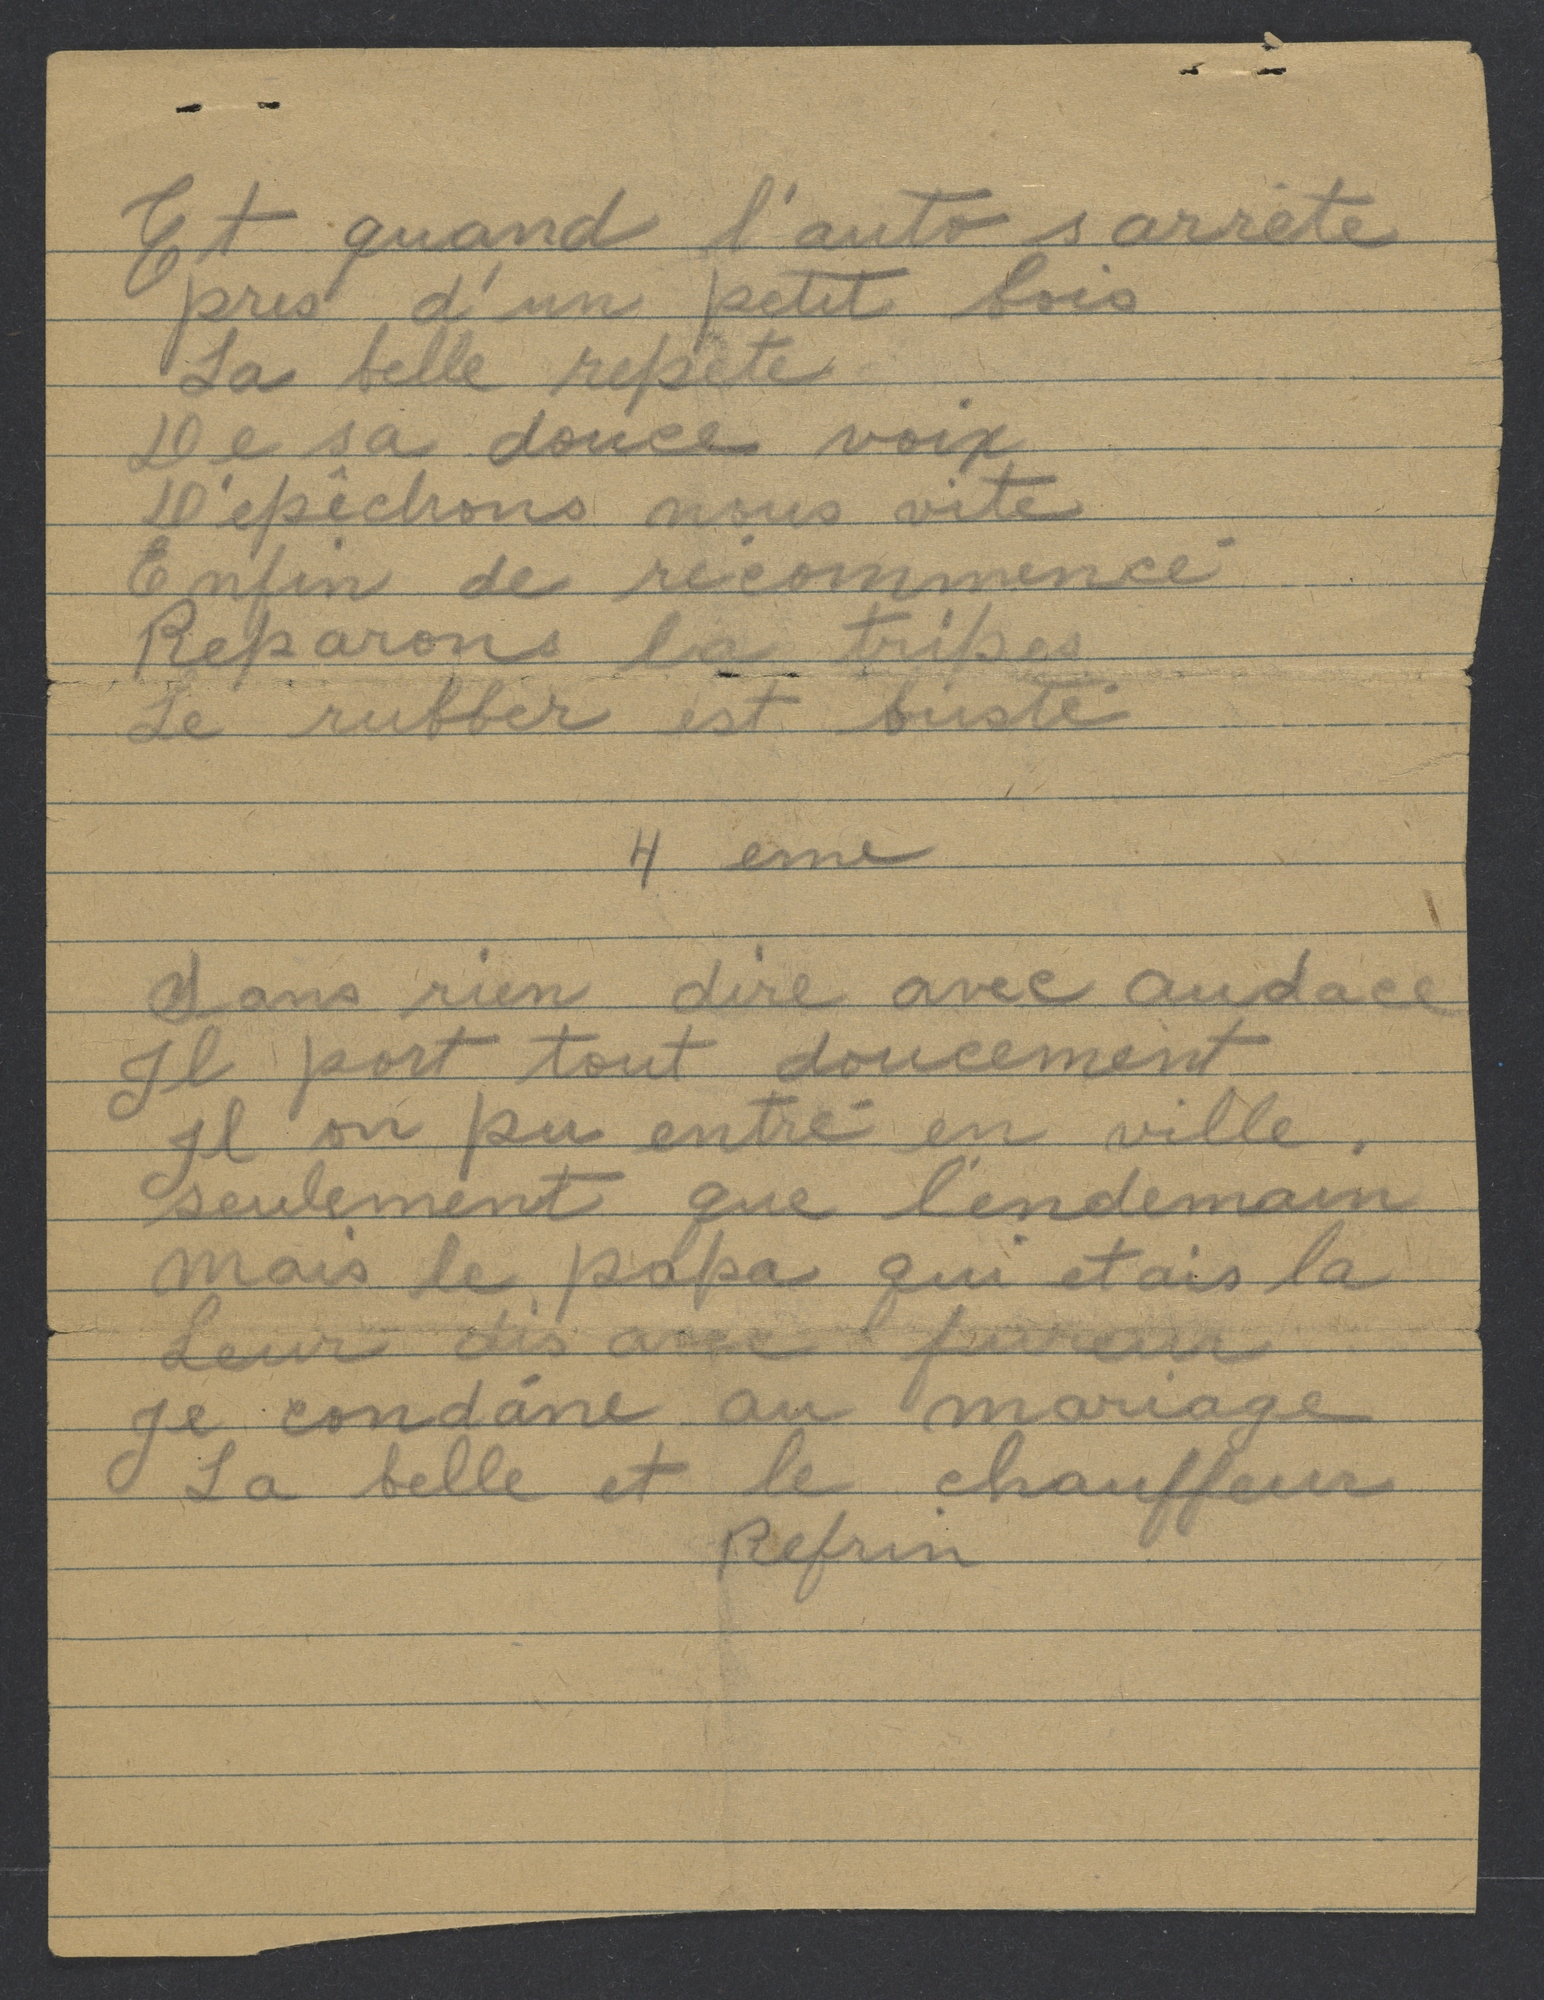 Et quand l'auto s arrête
pres d'un petit bois
La belle repète
De sa douce voix
D'epêchons nous vite
Enfin de récommencé
Reparons la tripes
Le rubber est busté
4 eme
Sans rien dire avec audace
Il part tout doucement
Il on pu entré en ville.
seulement que l'endemain
mais le papa qui etais la
Leur dis avec fureur
Je condâne au mariage
La belle et le chauffeur
Refrin